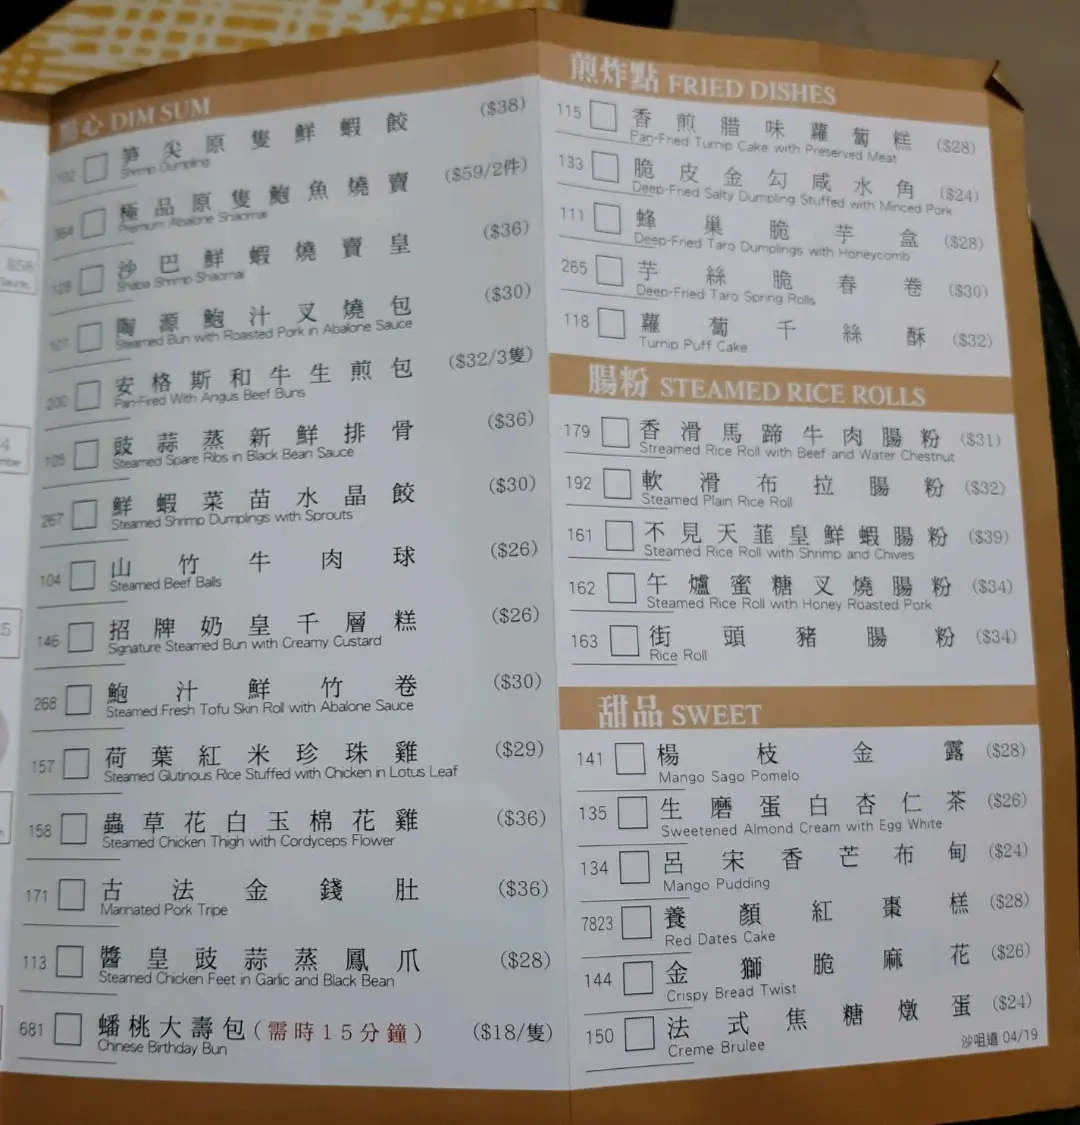 點心 DIM SUM
102 筍尖原隻鮮蝦餃 ($38)
Shrimp Dumpling
364 極品原隻鮑魚燒賣 ($59/2件)
Premium Abalone Shaomai
128 沙巴鮮蝦燒賣皇 ($36)
Shaba Shrimp Shaomai
101 陶源鮑汁叉燒包 ($30)
Steamed Bun with Roasted Pork in Abalone Sauce
200 安格斯和牛生煎包 ($32/3隻)
Pan-Fired With Angus Beef Buns
105 豉蒜蒸新鮮排骨 ($36)
Steamed Spare Ribs in Black Bean Sauce
267 鮮蝦菜苗水晶餃 ($30)
Steamed Shrimp Dumplings with Sprouts
104 山竹牛肉球 ($26)
Steamed Beef Balls
146 招牌奶皇千層糕 ($26)
Signature Steamed Bun with Creamy Custard
268 鮑汁鮮竹卷 ($30)
Steamed Fresh Tofu Skin Roll with Abalone Sauce
157 荷葉紅米珍珠雞 ($29)
Steamed Glutinous Rice Stuffed with Chicken in Lotus Leaf
158 蟲草花白玉棉花雞 ($36)
Steamed Chicken Thigh with Cordyceps Flower
171 古法金錢肚 ($36)
Marinated Pork Tripe
113 醬皇豉蒜蒸鳳爪 ($28)
Steamed Chicken Feet in Garlic and Black Bean
681 蟠桃大壽包(需時15分鐘) ($18/隻)
Chinese Birthday Bun
煎炸點 FRIED DISHES
115 香煎腊味蘿蔔糕 ($28)
Pan-Fried Turnip Cake with Preserved Meat
133 脆皮金勾咸水角 ($24)
Deep-Fried Salty Dumpling Stuffed with Minced Pork
111 蜂巢脆芋盒 ($28)
Deep-Fried Taro Dumplings with Honeycomb
265 芋絲脆春卷 ($30)
Deep-Fried Taro Spring Rolls
118 蘿蔔千絲酥 ($32)
Turnip Puff Cake
腸粉 STEAMED RICE ROLLS
179 香滑馬蹄牛肉腸粉 ($31)
Streamed Rice Roll with Beef and Water Chestnut
192 軟滑布拉腸粉 ($32)
Steamed Plain Rice Roll
161 不見天韮皇鮮蝦腸粉 ($39)
Steamed Rice Roll with Shrimp and Chives
162 午爐蜜糖叉燒腸粉 ($34)
Steamed Rice Roll with Honey Roasted Pork
163 街頭豬腸粉 ($34)
Rice Roll
甜品 SWEET
141 楊枝金露 ($28)
Mango Sago Pomelo
135 生磨蛋白杏仁茶 ($26)
Sweetened Almond Cream with Egg White
134 呂宋香芒布甸 ($24)
Mango Pudding
7823 養顏紅棗糕 ($28)
Red Dates Cake
144 金獅脆麻花 ($26)
Crispy Bread Twist
150 法式焦糖燉蛋 ($24)
Creme Brulee
沙咀道 04/19